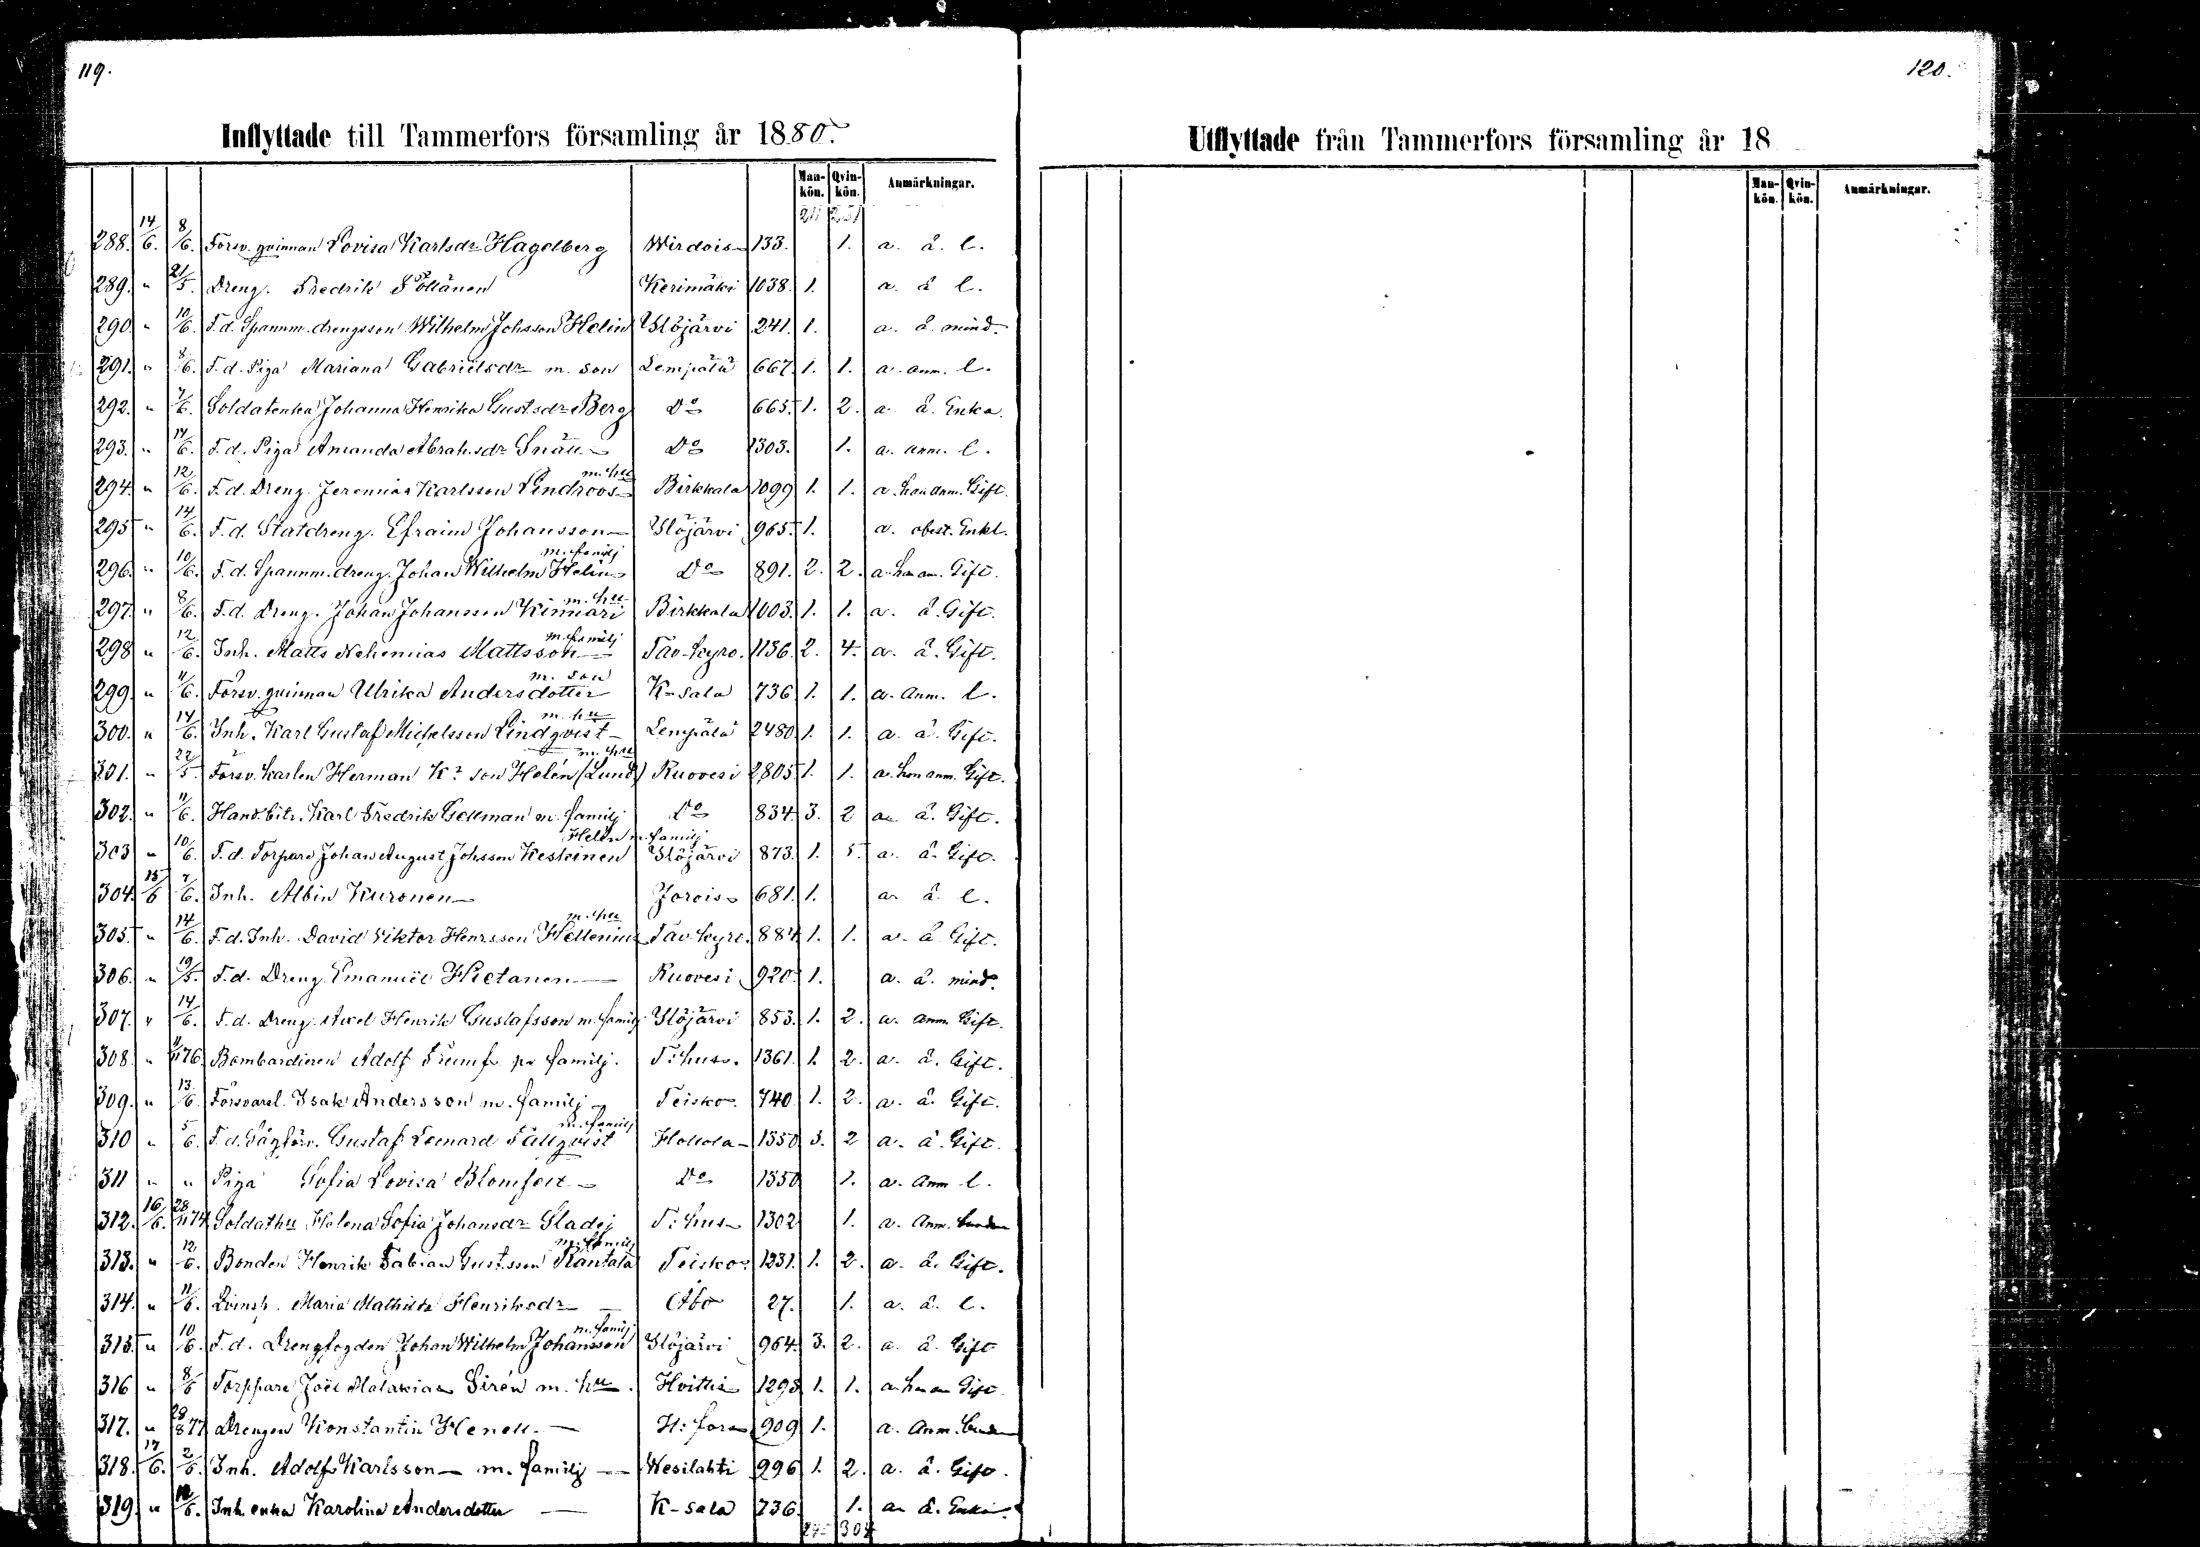 119.
Inflyttade till Tammerfors församling år 1880.
Man-kön. Qvin-kön. Anmärkningar.
288. 14/6. 8/6. Försv. qvinnan Lovisa Karlsdr Hagelberg Wirdois 133. 1. a. å. l.
289. " 21/5. Dreng. Fredrik Pöllänen Kerimäki 1038. 1. a. å l.
290. " 10/6. F.d. Spannm. drengsson Wilhelm Johsson Helin Ylöjärvi 241. 1. a. å. mind.
291. " 8/6. F.d. Piga Mariana Gabrielsdr m. son Lempälä 667. 1. 1. a. anm. l.
292. " 7/6. Soldatenka Johanna Henrika Gustsdr Berg Do 665. 1. 2. a. å. Enka.
293. " 14/6. F.d. Piga Amanda Abrah.sdr Snäll Do 1303. 1. a. anm. l.
294. " 12/6. F.d. Dreng. Jeremias Karlsson Lindroos m. hu Birkkala 1099 1. 1. a. han anm. Gift.
295 " 14/6. F.d. Statdreng. Efraim Johansson Ylöjärvi 965. 1. a. obest. Enkl.
296. " 10/6. F.d. Spannm. dreng. Johan Wilhelm Helin m. familj Do 891. 2. 2. a. han an. Gift.
297. " 8/6. F.d. Dreng. Johan Johansson Kinnari m. hu Birkkala 1003. 1. 1. a. å. Gift.
298 " 12/6. Inh. Matts Nehemias Mattsson m. familj Tav-kyro. 1136. 2. 4. a. å. Gift.
299. " 11/6. Försv. qvinnan Ulrika Andersdotter m. son K-sala 736 1. 1. a. Anm. l.
300. " 14/6. Inh. Karl Gustaf Michelsson Lindqvist m. hu Lempälä 2480 1. 1. a. å. Gift.
301. " 22/5. Försv. karlen Herman Kr son Helén (Lund) m. hu Ruovesi 2805 1. 1. a. han anm. Gift.
302. " 11/6. Handl.bitr. Karl Fredrik Gellman m. familj Do 834 3. 2 a. å. Gift.
303 " 10/6. F.d. Torpare Johan August Johsson Keskinen Helén m. familj Ylöjärvi 873. 1. 5. a. å. Gift.
304. 15/6 7/6. Inh. Albin Kuronen Jorois 681. 1. a. å. l.
305. " 14/6. F.d. Inh. David Viktor Henrsson Hellenius m. hu Tav-kyro. 884 1. 1. a. å. Gift.
306. " 19/5. F.d. Dreng. Emanuel Hietanen Ruovesi 920. 1. a. å. mind.
307. " 14/6. F.d. Dreng. Axel Henrik Gustafsson m. familj Ylöjärvi 853. 1. 2. a. anm. Gift.
308. " 11/11 76. Bombardieren Adolf Trumf m familj. T:hus. 1361. 1. 2. a. å. Gift.
309. " 13/6. Försvarsl. Isak Andersson m. familj Teisko. 740. 1. 2. a. å. Gift.
310 " 5/6. F.d. Sågförv. Gustaf Leonard Tallqvist m. familj Hollola 1350 3. 2 a. å. Gift.
311 " " Piga Sofia Lovisa Blomfelt Do 1350 1. a. Anm l.
312. 16/6. 28/11 74 Soldathu Helena Sofia Johansdr Gladej T:hus 1302 1. a. Anm.
313. " 12/6. Bonden Henrik Fabian Gustsson Rantala m. familj Teisko 1231. 1. 2. a. å. Gift.
314. " 11/6. Qvinsp. Maria Mathilda Henriksdr Åbo 27. 1. a. å. l.
315. " 10/6. F.d. Drengfogden Johan Wilhelm Johansson m. familj Ylöjärvi 964. 3. 2. a. å. Gift
316 " 8/6 Torppare Joël Malakias Sirén m. hu. Hvittis 1298 1. 1. a. han an Gift.
317. " 28/8 77 Drengen Konstantin Henell. H:fors 909 1. a. Anm.
318. 17/6. 2/6. Inh. Adolf Karlsson m. familj Wesilahti 996 1. 2. a. å. Gift.
319. " 12/6. Inh. enka Karolina Andersdotter K-sala 736. 1. a. å. Enka.
304
120.
Utflyttade från Tammerfors församling år 18
Man-kön. Qvin-kön. Anmärkningar.